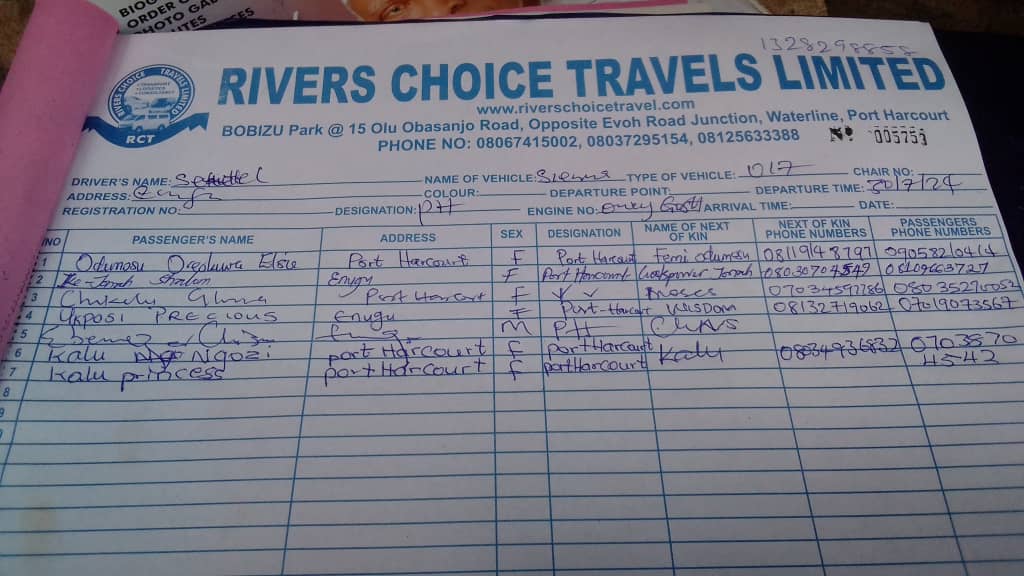 BIOG
ORDER O
PHOTO GAL
1328298858
RIVERS CHOICE TRAVELS LIMITED
RIVERS CHOICE TRAVELS LIMITED
RCT
www.riverschoicetravel.com
BOBIZU Park @ 15 Olu Obasanjo Road, Opposite Evoh Road Junction, Waterline, Port Harcourt
PHONE NO: 08067415002, 08037295154, 08125633388 Nº
DRIVER'S NAME: NAME OF VEHICLE: Sienna TYPE OF VEHICLE: CHAIR NO:
ADDRESS: Enugu COLOUR: DEPARTURE POINT: DEPARTURE TIME: 30/7/24
REGISTRATION NO: DESIGNATION: PH ENGINE NO: ARRIVAL TIME: DATE:
S/NO PASSENGER'S NAME ADDRESS SEX DESIGNATION NAME OF NEXT OF KIN NEXT OF KIN PHONE NUMBERS PASSENGERS PHONE NUMBERS
1 Odumosu Oreoluwa Elsie Port Harcourt F Port Harcourt Femi Odumosu 08119148797
2 Enugu F Port Harcourt Jonah 08030704549 08109663727
3 Port Harcourt F Moses
4 Ukposi PRECIOUS Enugu F Port-Harcourt WISDOM 08132719062 07019073567
5 M PH
6 Kalu Ngozi port Harcourt F port Harcourt Kalu 08034936832 0703870
7 Kalu princess port Harcourt F port Harcourt 4542
8
9